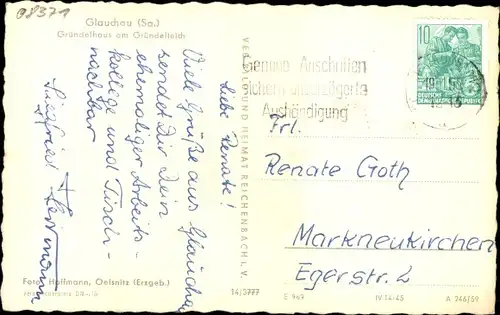 08371
Glauchau (Sa.)
Gründelhaus am Gründelteich
Liebe Renate!
Viele Grüße aus Glauchau
sendet Dir Dein
ehemaliger Arbeits-
kollege und Tisch-
nachbar
Siegfried
Foto: Hoffmann, Oelsnitz (Erzgeb.)
VERLAG BILD UND HEIMAT REICHENBACH I. V.
14/3777
Genaue Anschriften
sichern unverzögerte
Aushändigung
10
DEUTSCHE
DEMOKRATISCHE REPUBLIK
Frl.
Renate Goth
Markneukirchen
Egerstr. 2
E 969
IV-14-45
A 246/59